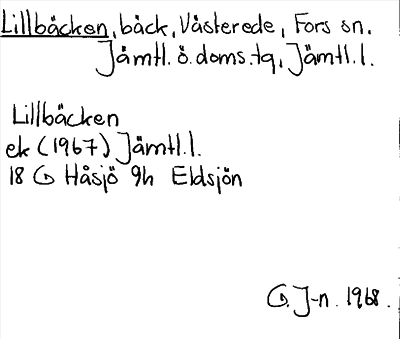 Lillbäcken, bäck, Västerede, Fors sn.
Jämtl. ö. doms. tg, Jämtl. l.
Lillbäcken
ek (1967) Jämtl. l.
18 G Håsjö 9h Eldsjön
G. J-n. 1968.